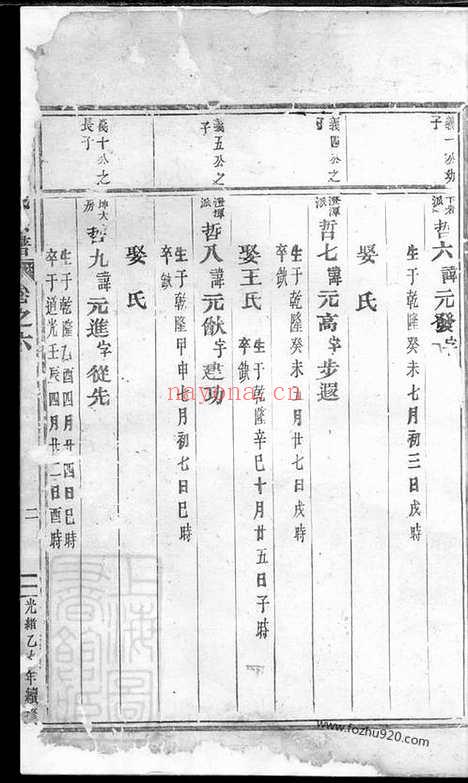 義一公幼子
派 哲六諱元發字
生于乾隆癸未七月初三日戌時
娶 氏
義四公之子
澄潭派 哲七諱元高字步遐
生于乾隆癸未 月廿七日戌時
卒缺
義五公之子
澄潭派 哲八諱元猷字建功
生于乾隆甲申七月初七日巳時
卒缺
娶王氏 生于乾隆辛巳十月廿五日子時
卒缺
娶 氏
義十公之長子
坤大房 哲九諱元進字從先
生于乾隆乙酉四月廿四日巳時
卒于道光壬辰四月廿二日酉時
譜 卷之六
二
光緒乙 年續修
上海圖書館藏
nayona.cn
www.fozhu920.com